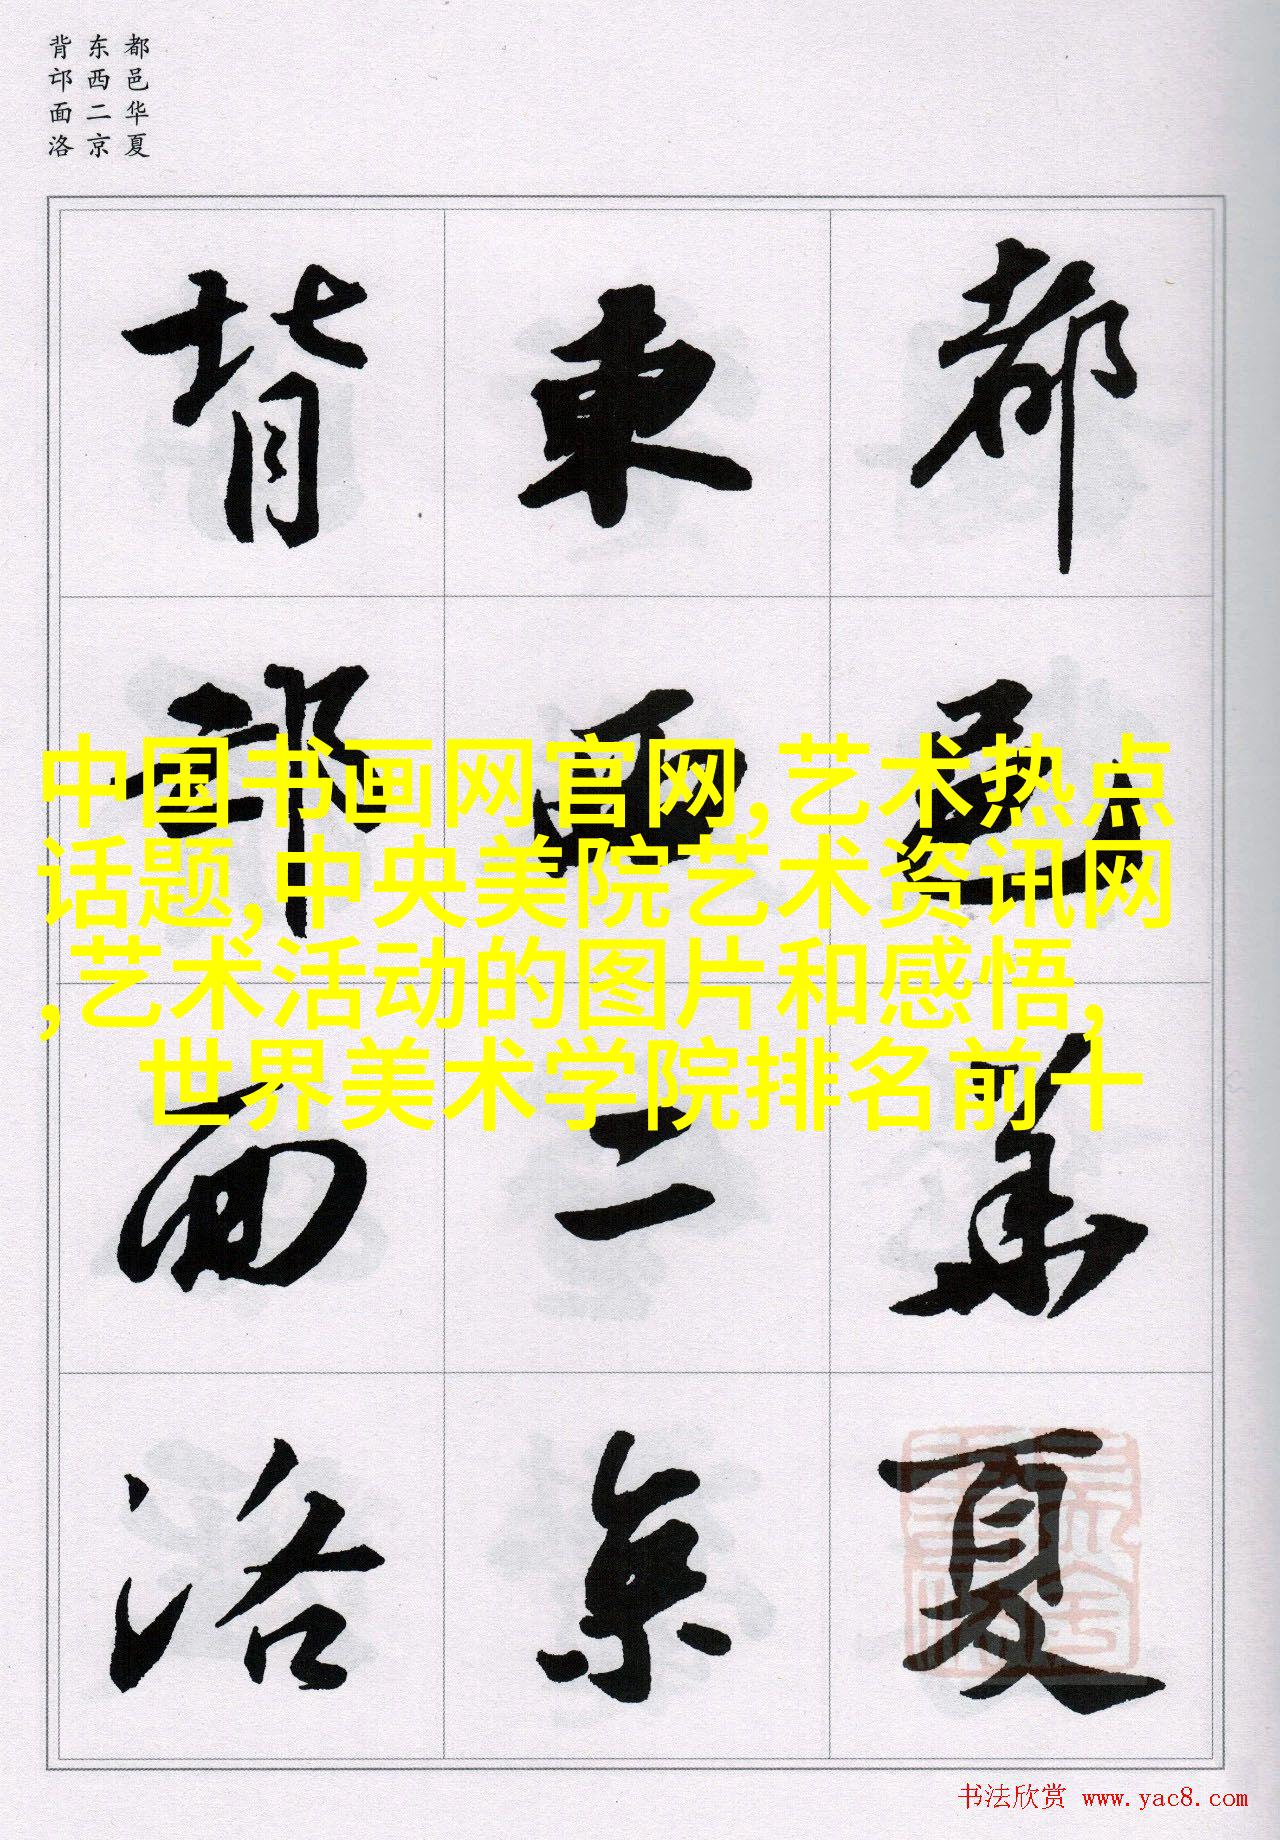 都邑华夏
东西二京
背邙面洛
都邑華夏
東西二京
背邙面洛
中国书画网官网,艺术热点
话题,中央美院艺术资讯网
,艺术活动的图片和感悟,
世界美术学院排名前十
书法欣赏 www.yac8.com